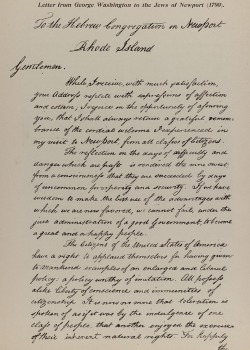 Letter from George Washington to the Jews of Newport (1790)
To the Hebrew Congregation in Newport
Rhode Island
Gentlemen.
While I receive, with much satisfaction,
your Address replete with expressions of affection
and esteem, I rejoice in the opportunity of assuring
you, that I shall always retain a grateful remem-
brance of the cordial welcome I experienced in
my visit to Newport, from all classes of Citizens.
The reflection on the days of difficulty and
danger which are past is rendered the more sweet
from a consciousness that they are succeeded by days
of uncommon prosperity and security. If we have
wisdom to make the best use of the advantages with
which we are now favored, we cannot fail, under the
just administration of a good Government, to become
a great and a happy people.
The Citizens of the United States of America
have a right to applaud themselves for having given
to mankind examples of an enlarged and liberal
policy: a policy worthy of imitation. All possess
alike liberty of conscience and immunities of
citizenship. It is now no more that toleration is
spoken of, as if it was by the indulgence of one
class of people, that another enjoyed the exercise
of their inherent natural rights. For happily
the